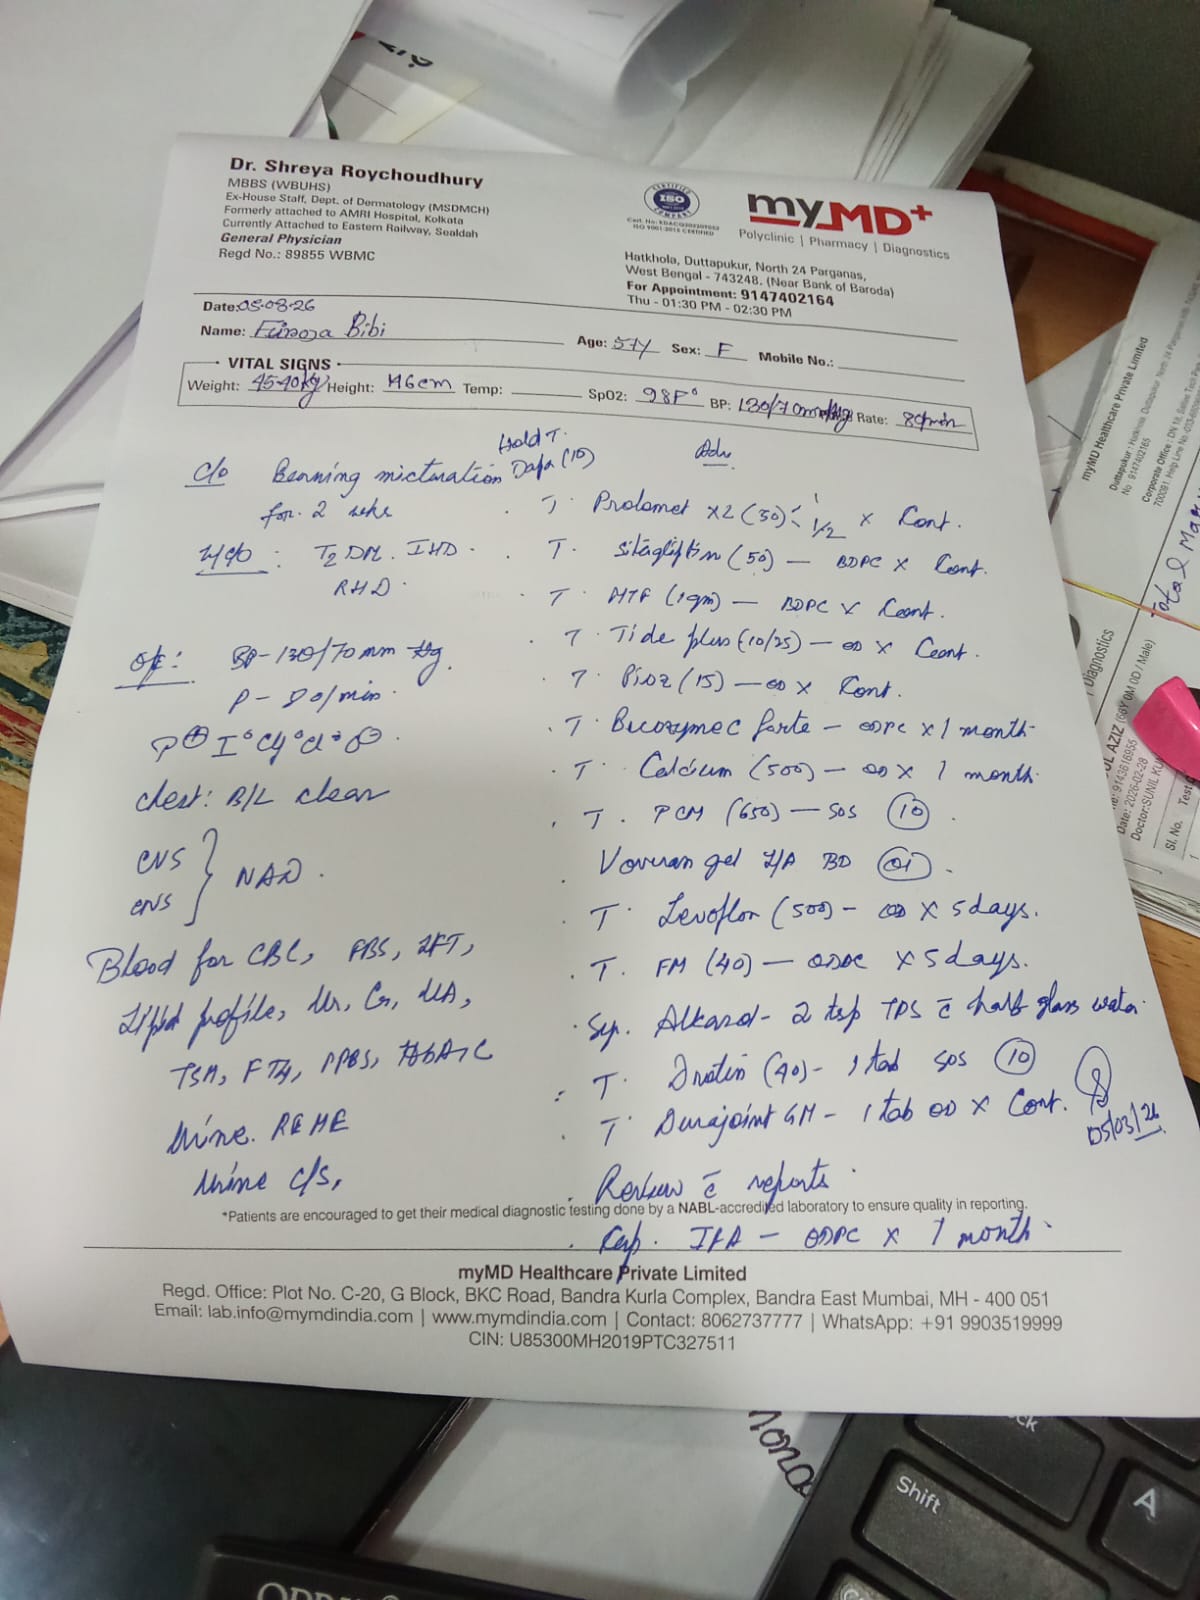 Dr. Shreya Roychoudhury
MBBS (WBUHS)
Ex-House Staff, Dept. of Dermatology (MSDMCH)
Formerly attached to AMRI Hospital, Kolkata
Currently Attached to Eastern Railway, Sealdah
General Physician
Regd No.: 89855 WBMC
CERTIFIED
ISO
COMPANY
ISO 9001:2015 CERTIFIED
myMD+
Polyclinic | Pharmacy | Diagnostics
Hatkhola, Duttapukur, North 24 Parganas,
West Bengal - 743248. (Near Bank of Baroda)
For Appointment: 9147402164
Thu - 01:30 PM - 02:30 PM
Date: 05-03-26
Name: Firoza Bibi Age: 57y Sex: F Mobile No.:
VITAL SIGNS
Weight: 45.40kg Height: 146cm Temp: SpO2: 98F° BP: 130/70mmHg Rate: 80/min
Hold T.
Dapa (10)
Adv.
c/o Burning micturation
for 2 wks
H/o : T2DM. IHD.
RHD.
O/E: BP-130/70 mm Hg.
P- 80/min.
Chest: B/L clear
CVS
CNS
NAD.
Blood for CBC, FBS, LFT,
Lipid profile, Ur, Cr, UA,
TSH, FT4, PPBS, HbA1C
Urine RE ME
Urine C/S,
T. Prolomet XL (50) 1/2 x Cont.
T. Sitagliptin (50) — BDPC x Cont.
T. MTF (1gm) — BDPC x Cont.
T. Tide plus (10/25) — OD x Cont.
T. Pioz (15) — OD x Cont.
T. Becozymec forte — ODPC x 1 month
T. Calcium (500) — OD x 1 month.
T. PCM (650) — SOS (10).
Voveran gel L/A BD (01).
T. Levoflox (500) — OD x 5days.
T. FM (40) — ODAC x 5days.
Syp. Alkasol - 2 tsp TDS c̄ half glass water.
T. Drotin (40) - 1 tab SOS (10)
T. Durajoint GM - 1 tab OD x Cont.
05/03/26
Review c̄ reports.
*Patients are encouraged to get their medical diagnostic testing done by a NABL-accredited laboratory to ensure quality in reporting.
Cap. IFA — ODPC x 1 month.
myMD Healthcare Private Limited
Regd. Office: Plot No. C-20, G Block, BKC Road, Bandra Kurla Complex, Bandra East Mumbai, MH - 400 051
Email: lab.info@mymdindia.com | www.mymdindia.com | Contact: 8062737777 | WhatsApp: +91 9903519999
CIN: U85300MH2019PTC327511
myMD Healthcare Private Limited
Total
Diagnostics
AZIZ (66Y 0M 0D / Male)
9143616955
Date: 2026-02-28
Doctor:SUNIL
Sl. No. Test
Shift
A